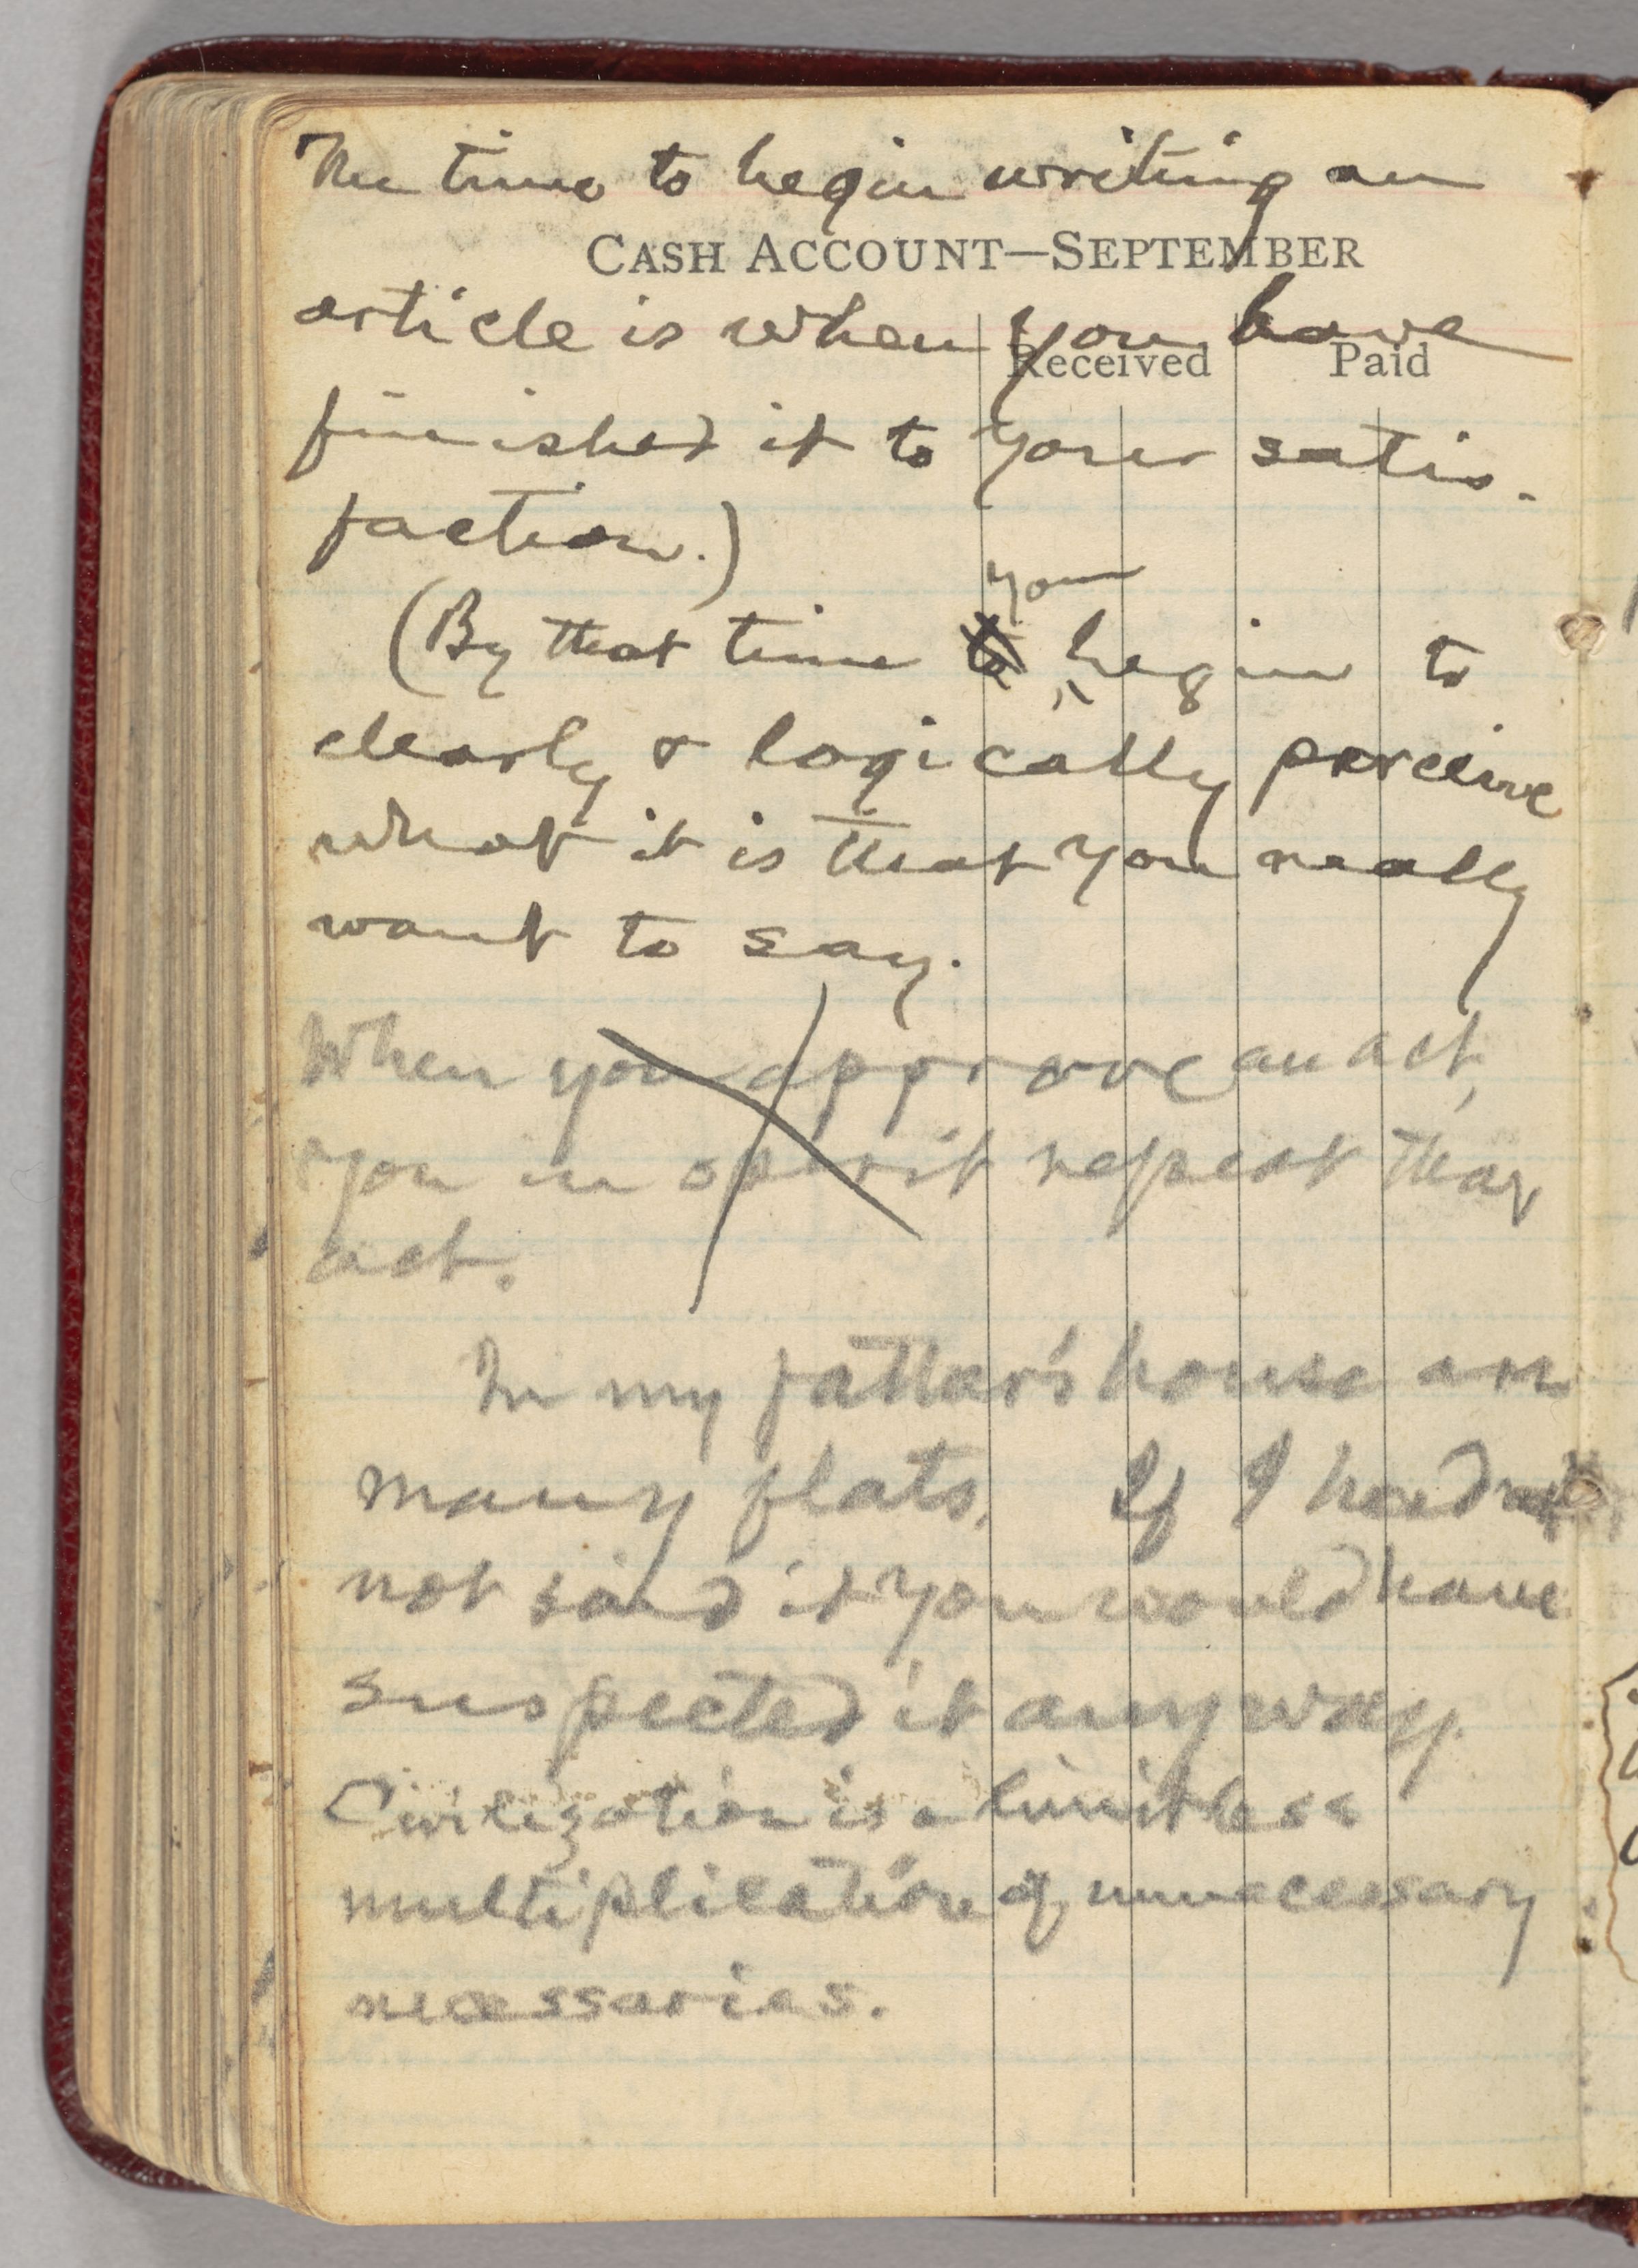 The time to begin writing an
CASH ACCOUNT—SEPTEMBER
article is when you have
Received Paid
finished it to your satis-
faction.)
you
(By that time begin to
clearly & logically perceive
what it is that you really
want to say.
When you approve an act,
you in spirit repeat that
act.
In my father's house are
many flats. If I had
not said it you would have
suspected it anyway.
Civilization is a limitless
multiplication of unnecessary
necessaries.